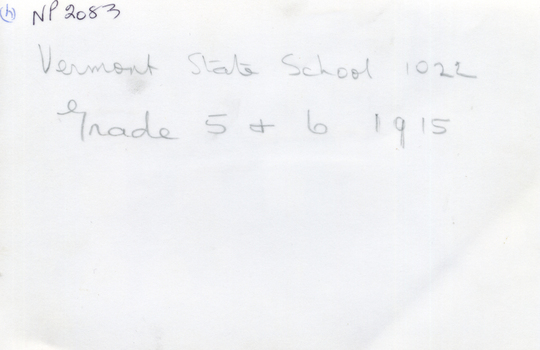 (h) NP 2083
Vermont State School 1022
Grade 5 & 6 1915